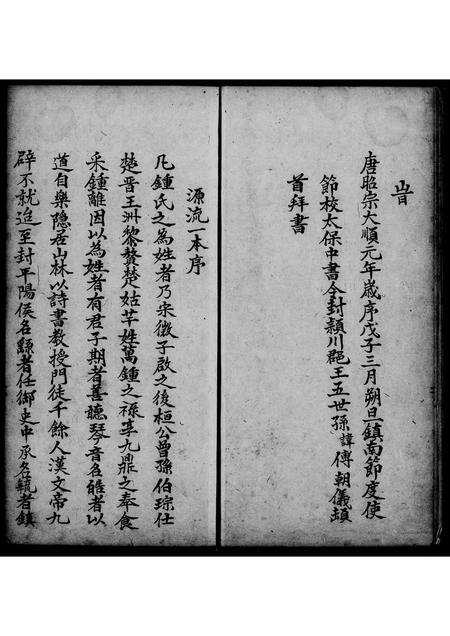 旹
唐昭宗大順元年歲序戊子三月朔旦鎮南節度使
節校太保中書令封潁川郡王五世孫諱傳朝儀頓
首拜書
源流一本序
凡鍾氏之為姓者乃宋微子啟之後桓公曾孫伯琮仕
楚晋王洲黎贅楚姑芊姓萬鍾之祿享九鼎之奉食
采鍾離因以為姓者有君子期者善聽琴音名皓者以
道自樂隐居山林以詩書教授門徒千餘人漢文帝九
辟不就迨至封平陽侯名繇者任御史中承名毓者鎮